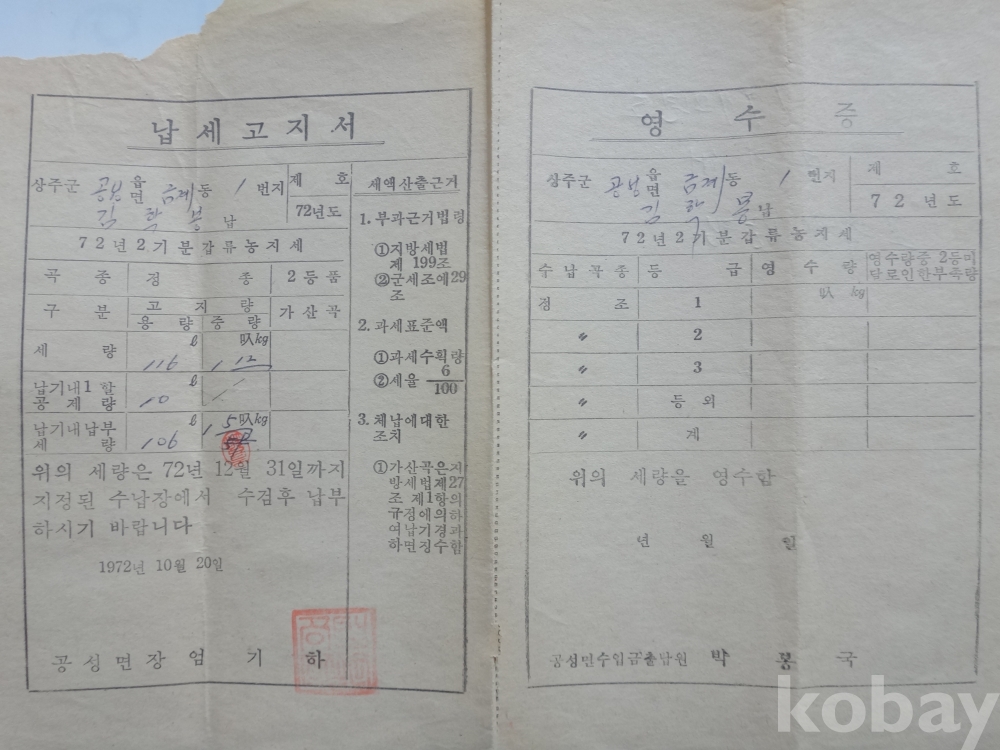 납세고지서
상주군 공성 읍면 금계동 1번지 제 호
김학봉 납 72년도
72년2기분갑류농지세
곡종 정 종 2등품
구분 고지량 가산곡
용량 중량
세량 116 ℓ 1叺 12 kg
납기내1할
공제량 10 ℓ
납기내납부
세량 106 ℓ 1叺 5 kg
위의 세량은 72년 12월 31일까지
지정된 수납장에서 수검후 납부
하시기 바랍니다
1972년 10월 20일
공성면장 엄기하
세액산출근거
1. 부과근거법령
①지방세법
제 199조
②군세조예29
조
2. 과세표준액
①과세수확량
②세율 6/100
3. 체납에대한
조치
①가산곡은지
방세법제27
조 제1항의
규정에의하
여납기경과
하면징수함
영수증
상주군 공성 읍면 금계동 1번지 제 호
김학봉 납 72년도
72년2기분갑류농지세
수납곡종 등급 영수량 영수량중 2등미
달로인한부족량
정조 1 叺 kg
〃 2
〃 3
〃 등외
〃 계
위의 세량을 영수함
년 월 일
공성면수입금출납원 박봉국
kobay